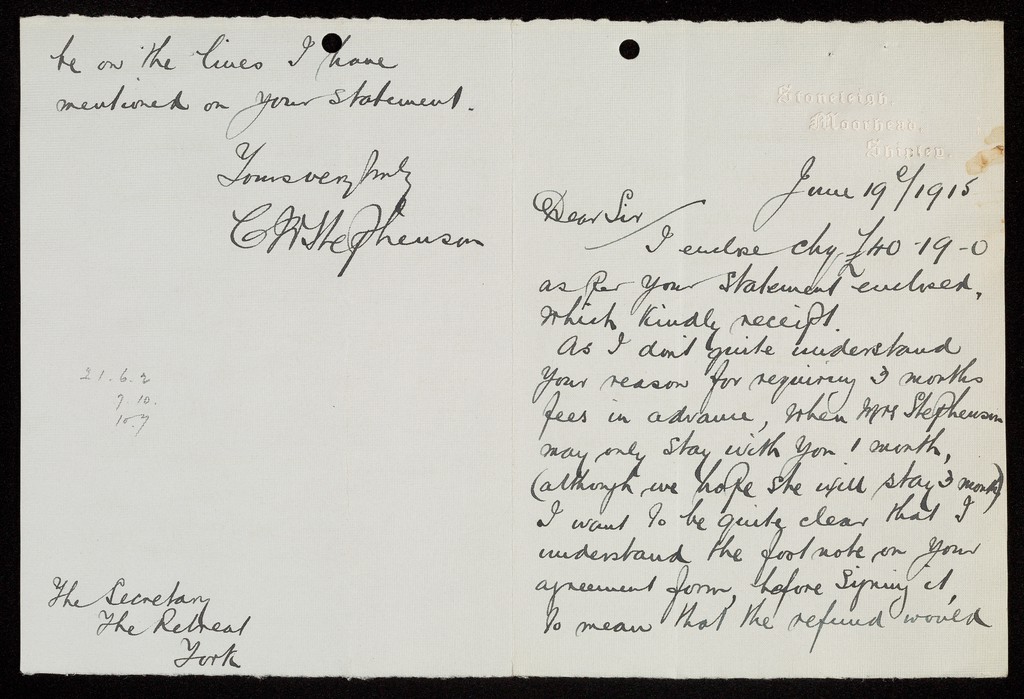 Stoneleigh,
Moorhead,
Shipley.
June 19th/1915
Dear Sir
I enclose chq £40-19-0
as per your statement enclosed,
which kindly receipt.
As I dont quite understand
your reason for requiring 3 months
fees in advance, when Mrs Stephenson
may only stay with you 1 month,
(although we hope she will stay 3 months)
I want to be quite clear that I
understand the foot note on your
agreement form, before signing it,
to mean that the refund would
be on the lines I have
mentioned on your statement.
Yours very truly
C W Stephenson
21.6.2
7.10.
10.7
The Secretary
The Retreat
York